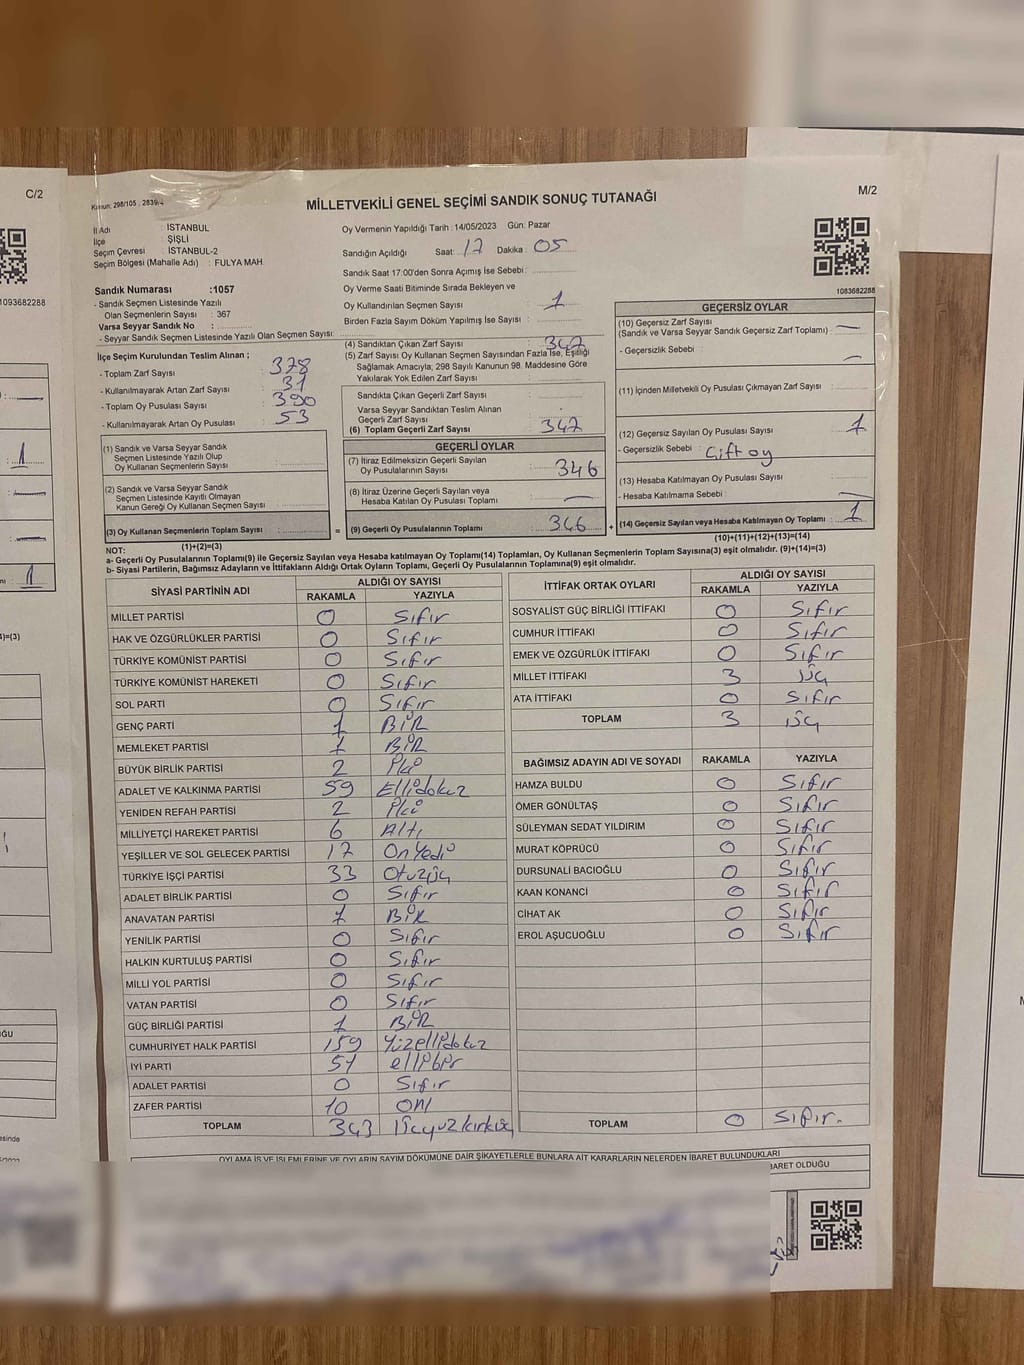 C/2
M/2
Kanun: 298/105 , 2839/4
MİLLETVEKİLİ GENEL SEÇİMİ SANDIK SONUÇ TUTANAĞI
İl Adı : İSTANBUL
İlçe : ŞİŞLİ
Seçim Çevresi : İSTANBUL-2
Seçim Bölgesi (Mahalle Adı) : FULYA MAH.
Sandık Numarası :1057
- Sandık Seçmen Listesinde Yazılı
Olan Seçmenlerin Sayısı : 367
Varsa Seyyar Sandık No :
- Seyyar Sandık Seçmen Listesinde Yazılı Olan Seçmen Sayısı:
Oy Vermenin Yapıldığı Tarih : 14/05/2023 Gün: Pazar
Sandığın Açıldığı Saat: 17 Dakika : 05
Sandık Saat 17:00'den Sonra Açımış İse Sebebi :
Oy Verme Saati Bitiminde Sırada Bekleyen ve
Oy Kullandırılan Seçmen Sayısı : 1
Birden Fazla Sayım Döküm Yapılmış İse Sayısı :
1083682288
1093682288
İlçe Seçim Kurulundan Teslim Alınan ;
- Toplam Zarf Sayısı : 378
- Kullanılmayarak Artan Zarf Sayısı : 31
- Toplam Oy Pusulası Sayısı : 390
- Kullanılmayarak Artan Oy Pusulası : 53
(1) Sandık ve Varsa Seyyar Sandık
Seçmen Listesinde Yazılı Olup
Oy Kullanan Seçmenlerin Sayısı :
(2) Sandık ve Varsa Seyyar Sandık
Seçmen Listesinde Kayıtlı Olmayan
Kanun Gereği Oy Kullanan Seçmen Sayısı :
(3) Oy Kullanan Seçmenlerin Toplam Sayısı :
(1)+(2)=(3)
(4) Sandıktan Çıkan Zarf Sayısı : 347
(5) Zarf Sayısı Oy Kullanan Seçmen Sayısından Fazla İse, Eşitliği
Sağlamak Amacıyla; 298 Sayılı Kanunun 98. Maddesine Göre
Yakılarak Yok Edilen Zarf Sayısı :
Sandıkta Çıkan Geçerli Zarf Sayısı :
Varsa Seyyar Sandıktan Teslim Alınan
Geçerli Zarf Sayısı :
(6) Toplam Geçerli Zarf Sayısı : 347
GEÇERLİ OYLAR
(7) İtiraz Edilmeksizin Geçerli Sayılan
Oy Pusulalarının Sayısı : 346
(8) İtiraz Üzerine Geçerli Sayılan veya
Hesaba Katılan Oy Pusulası Toplamı : —
= (9) Geçerli Oy Pusulalarının Toplamı : 346 +
GEÇERSİZ OYLAR
(10) Geçersiz Zarf Sayısı
(Sandık ve Varsa Seyyar Sandık Geçersiz Zarf Toplamı) : —
- Geçersizlik Sebebi : —
(11) İçinden Milletvekili Oy Pusulası Çıkmayan Zarf Sayısı :
(12) Geçersiz Sayılan Oy Pusulası Sayısı : 1
- Geçersizlik Sebebi : Çift oy
(13) Hesaba Katılmayan Oy Pusulası Sayısı :
- Hesaba Katılmama Sebebi : —
(14) Geçersiz Sayılan veya Hesaba Katılmayan Oy Toplamı : 1
(10)+(11)+(12)+(13)=(14)
NOT:
a- Geçerli Oy Pusulalarının Toplamı(9) ile Geçersiz Sayılan veya Hesaba katılmayan Oy Toplamı(14) Toplamları, Oy Kullanan Seçmenlerin Toplam Sayısına(3) eşit olmalıdır. (9)+(14)=(3)
b- Siyasi Partilerin, Bağımsız Adayların ve İttifakların Aldığı Ortak Oyların Toplamı, Geçerli Oy Pusulalarının Toplamına(9) eşit olmalıdır.
SİYASİ PARTİNİN ADI ALDIĞI OY SAYISI
RAKAMLA YAZIYLA
MİLLET PARTİSİ 0 Sıfır
HAK VE ÖZGÜRLÜKLER PARTİSİ 0 Sıfır
TÜRKİYE KOMÜNİST PARTİSİ 0 Sıfır
TÜRKİYE KOMÜNİST HAREKETİ 0 Sıfır
SOL PARTİ 0 Sıfır
GENÇ PARTİ 1 BİR
MEMLEKET PARTİSİ 1 BİR
BÜYÜK BİRLİK PARTİSİ 2 İki
ADALET VE KALKINMA PARTİSİ 59 Ellidokuz
YENİDEN REFAH PARTİSİ 2 İki
MİLLİYETÇİ HAREKET PARTİSİ 6 Altı
YEŞİLLER VE SOL GELECEK PARTİSİ 17 On Yedi
TÜRKİYE İŞÇİ PARTİSİ 33 Otuzüç
ADALET BİRLİK PARTİSİ 0 Sıfır
ANAVATAN PARTİSİ 1 BİR
YENİLİK PARTİSİ 0 Sıfır
HALKIN KURTULUŞ PARTİSİ 0 Sıfır
MİLLİ YOL PARTİSİ 0 Sıfır
VATAN PARTİSİ 0 Sıfır
GÜÇ BİRLİĞİ PARTİSİ 1 BİR
CUMHURİYET HALK PARTİSİ 159 Yüzellidokuz
İYİ PARTİ 51 ellibir
ADALET PARTİSİ 0 Sıfır
ZAFER PARTİSİ 10 ON
TOPLAM 343 Üçyüzkırküç
İTTİFAK ORTAK OYLARI ALDIĞI OY SAYISI
RAKAMLA YAZIYLA
SOSYALİST GÜÇ BİRLİĞİ İTTİFAKI 0 Sıfır
CUMHUR İTTİFAKI 0 Sıfır
EMEK VE ÖZGÜRLÜK İTTİFAKI 0 Sıfır
MİLLET İTTİFAKI 3 üç
ATA İTTİFAKI 0 Sıfır
TOPLAM 3 üç
BAĞIMSIZ ADAYIN ADI VE SOYADI RAKAMLA YAZIYLA
HAMZA BULDU 0 Sıfır
ÖMER GÖNÜLTAŞ 0 Sıfır
SÜLEYMAN SEDAT YILDIRIM 0 Sıfır
MURAT KÖPRÜCÜ 0 Sıfır
DURSUNALİ BACIOĞLU 0 Sıfır
KAAN KONANCİ 0 Sıfır
CİHAT AK 0 Sıfır
EROL AŞUCUOĞLU 0 Sıfır
TOPLAM 0 Sıfır.
OYLAMA İŞ VE İŞLEMLERİNE VE OYLARIN SAYIM DÖKÜMÜNE DAİR ŞİKAYETLERLE BUNLARA AİT KARARLARIN NELERDEN İBARET BULUNDUKLARI
BARET OLDUĞU